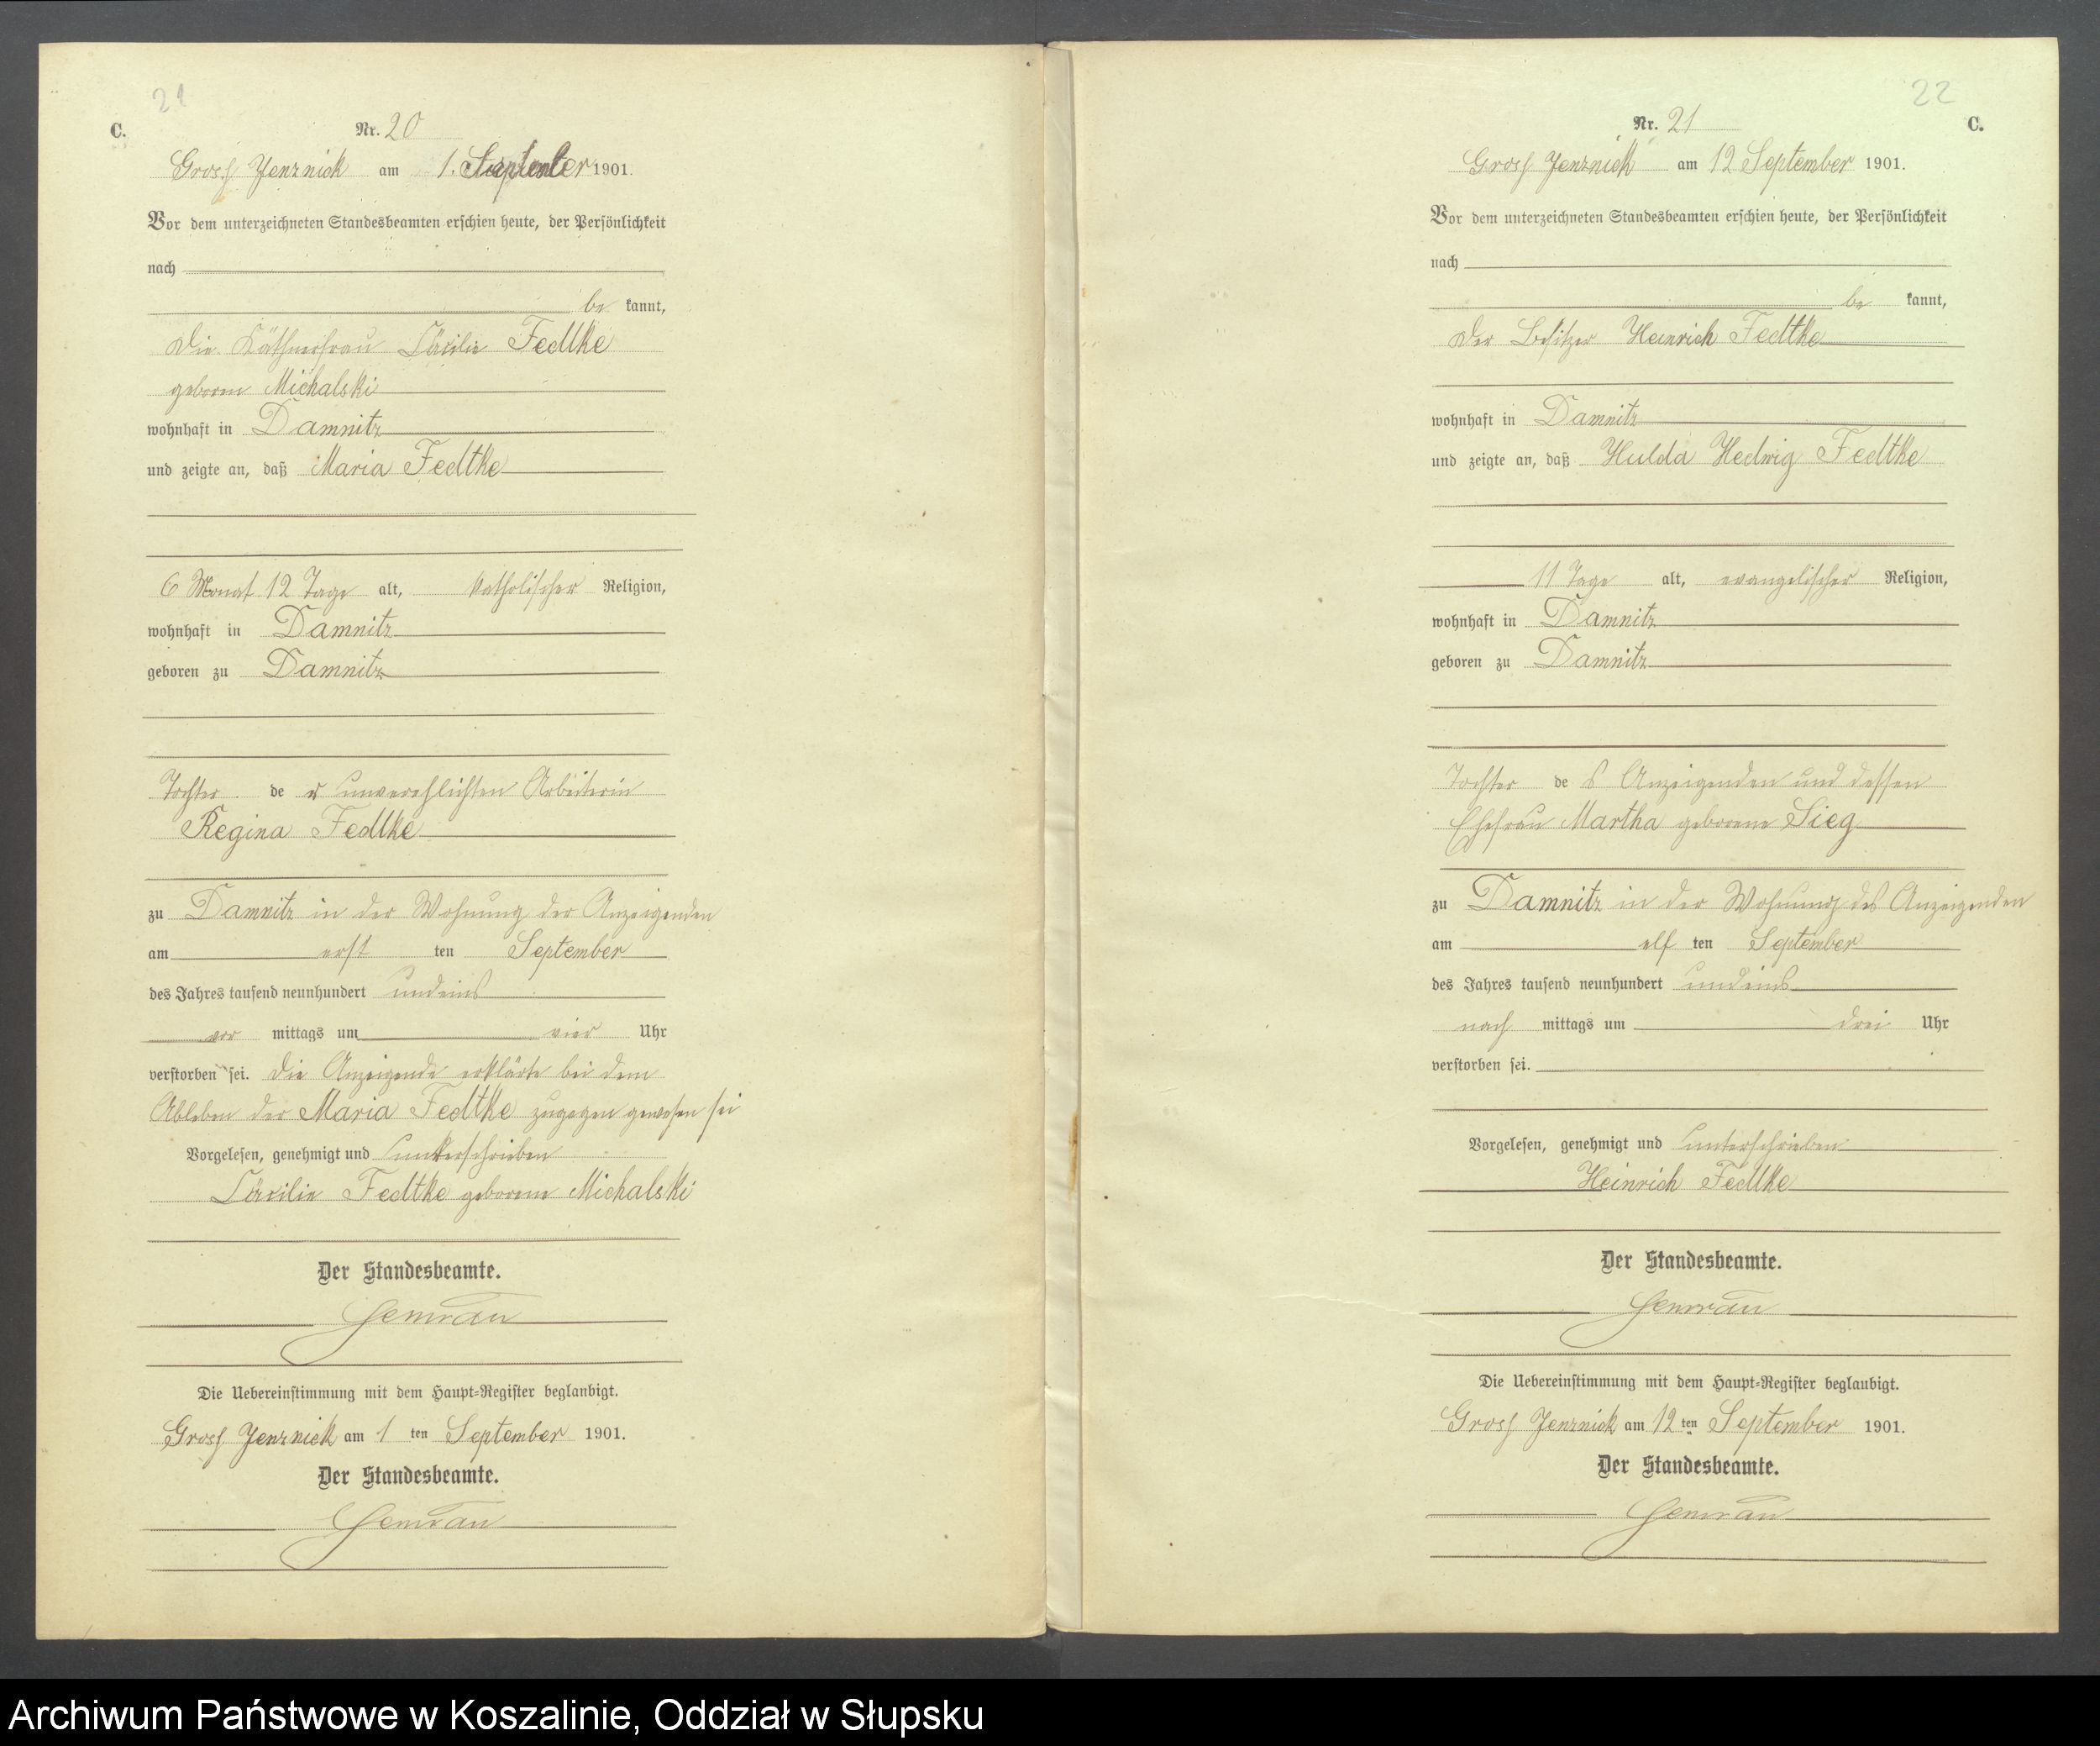 21
C.
Nr. 20
Gross Jenznick am 1. September 1901.
Vor dem unterzeichneten Standesbeamten erschien heute, der Persönlichkeit
nach
be kannt,
die Käthnerfrau Cäcilie Fedtke
geboren Michalski
wohnhaft in Damnitz
und zeigte an, daß Maria Fedtke
6 Monat 12 Tage alt, katholischer Religion,
wohnhaft in Damnitz
geboren zu Damnitz
Tochter de r unverehlichten Arbeiterin
Regina Fedtke
zu Damnitz in der Wohnung der Anzeigenden
am erst ten September
des Jahres tausend neunhundert undeins
vor mittags um vier Uhr
verstorben sei. die Anzeigende erklärte bei dem
Ableben der Maria Fedtke zugegen gewesen sei
Vorgelesen, genehmigt und unterschrieben
Cäcilie Fedtke geborene Michalski
Der Standesbeamte.
Gemrau
Die Uebereinstimmung mit dem Haupt-Register beglaubigt.
Gross Jenznick am 1 ten September 1901.
Der Standesbeamte.
Gemrau
22
Nr. 21
C.
Gross Jenznick am 12 September 1901.
Vor dem unterzeichneten Standesbeamten erschien heute, der Persönlichkeit
nach
be kannt,
der Besitzer Heinrich Fedtke
wohnhaft in Damnitz
und zeigte an, daß Hulda Hedwig Fedtke
11 Tage alt, evangelischer Religion,
wohnhaft in Damnitz
geboren zu Damnitz
Tochter de s Anzeigenden und dessen
Ehefrau Martha geborene Sieg
zu Damnitz in der Wohnung des Anzeigenden
am elf ten September
des Jahres tausend neunhundert undeins
nach mittags um drei Uhr
verstorben sei.
Vorgelesen, genehmigt und unterschrieben
Heinrich Fedtke
Der Standesbeamte.
Gemrau
Die Uebereinstimmung mit dem Haupt-Register beglaubigt.
Gross Jenznick am 12 ten September 1901.
Der Standesbeamte.
Gemrau
Archiwum Państwowe w Koszalinie, Oddział w Słupsku